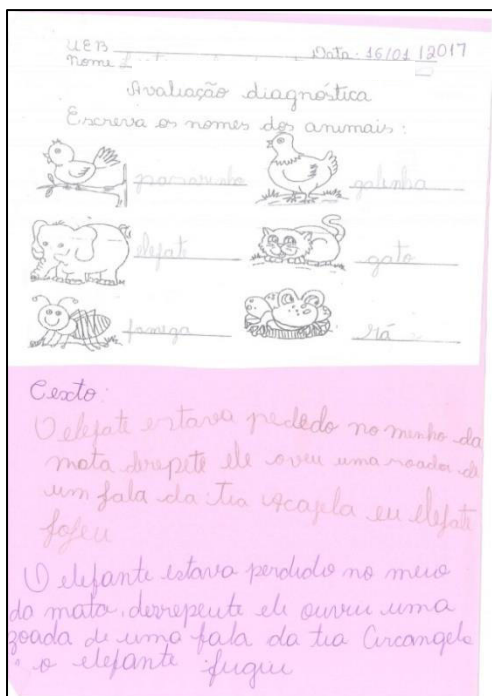 UEB Data: 16/01/2017
Nome
Avaliação diagnóstica
Escreva os nomes dos animais:
passarinho galinha
elefati gato
famiga rá
Texto:
O elefate estava pededo no minho da
mata derepete ele oveu uma roada de
um fala da tia eu elefate
fofeu
O elefante estava perdido no meio
da mata, derrepente ele ouviu uma
zoada de uma fala da tia Arcangela
e o elefante fugiu